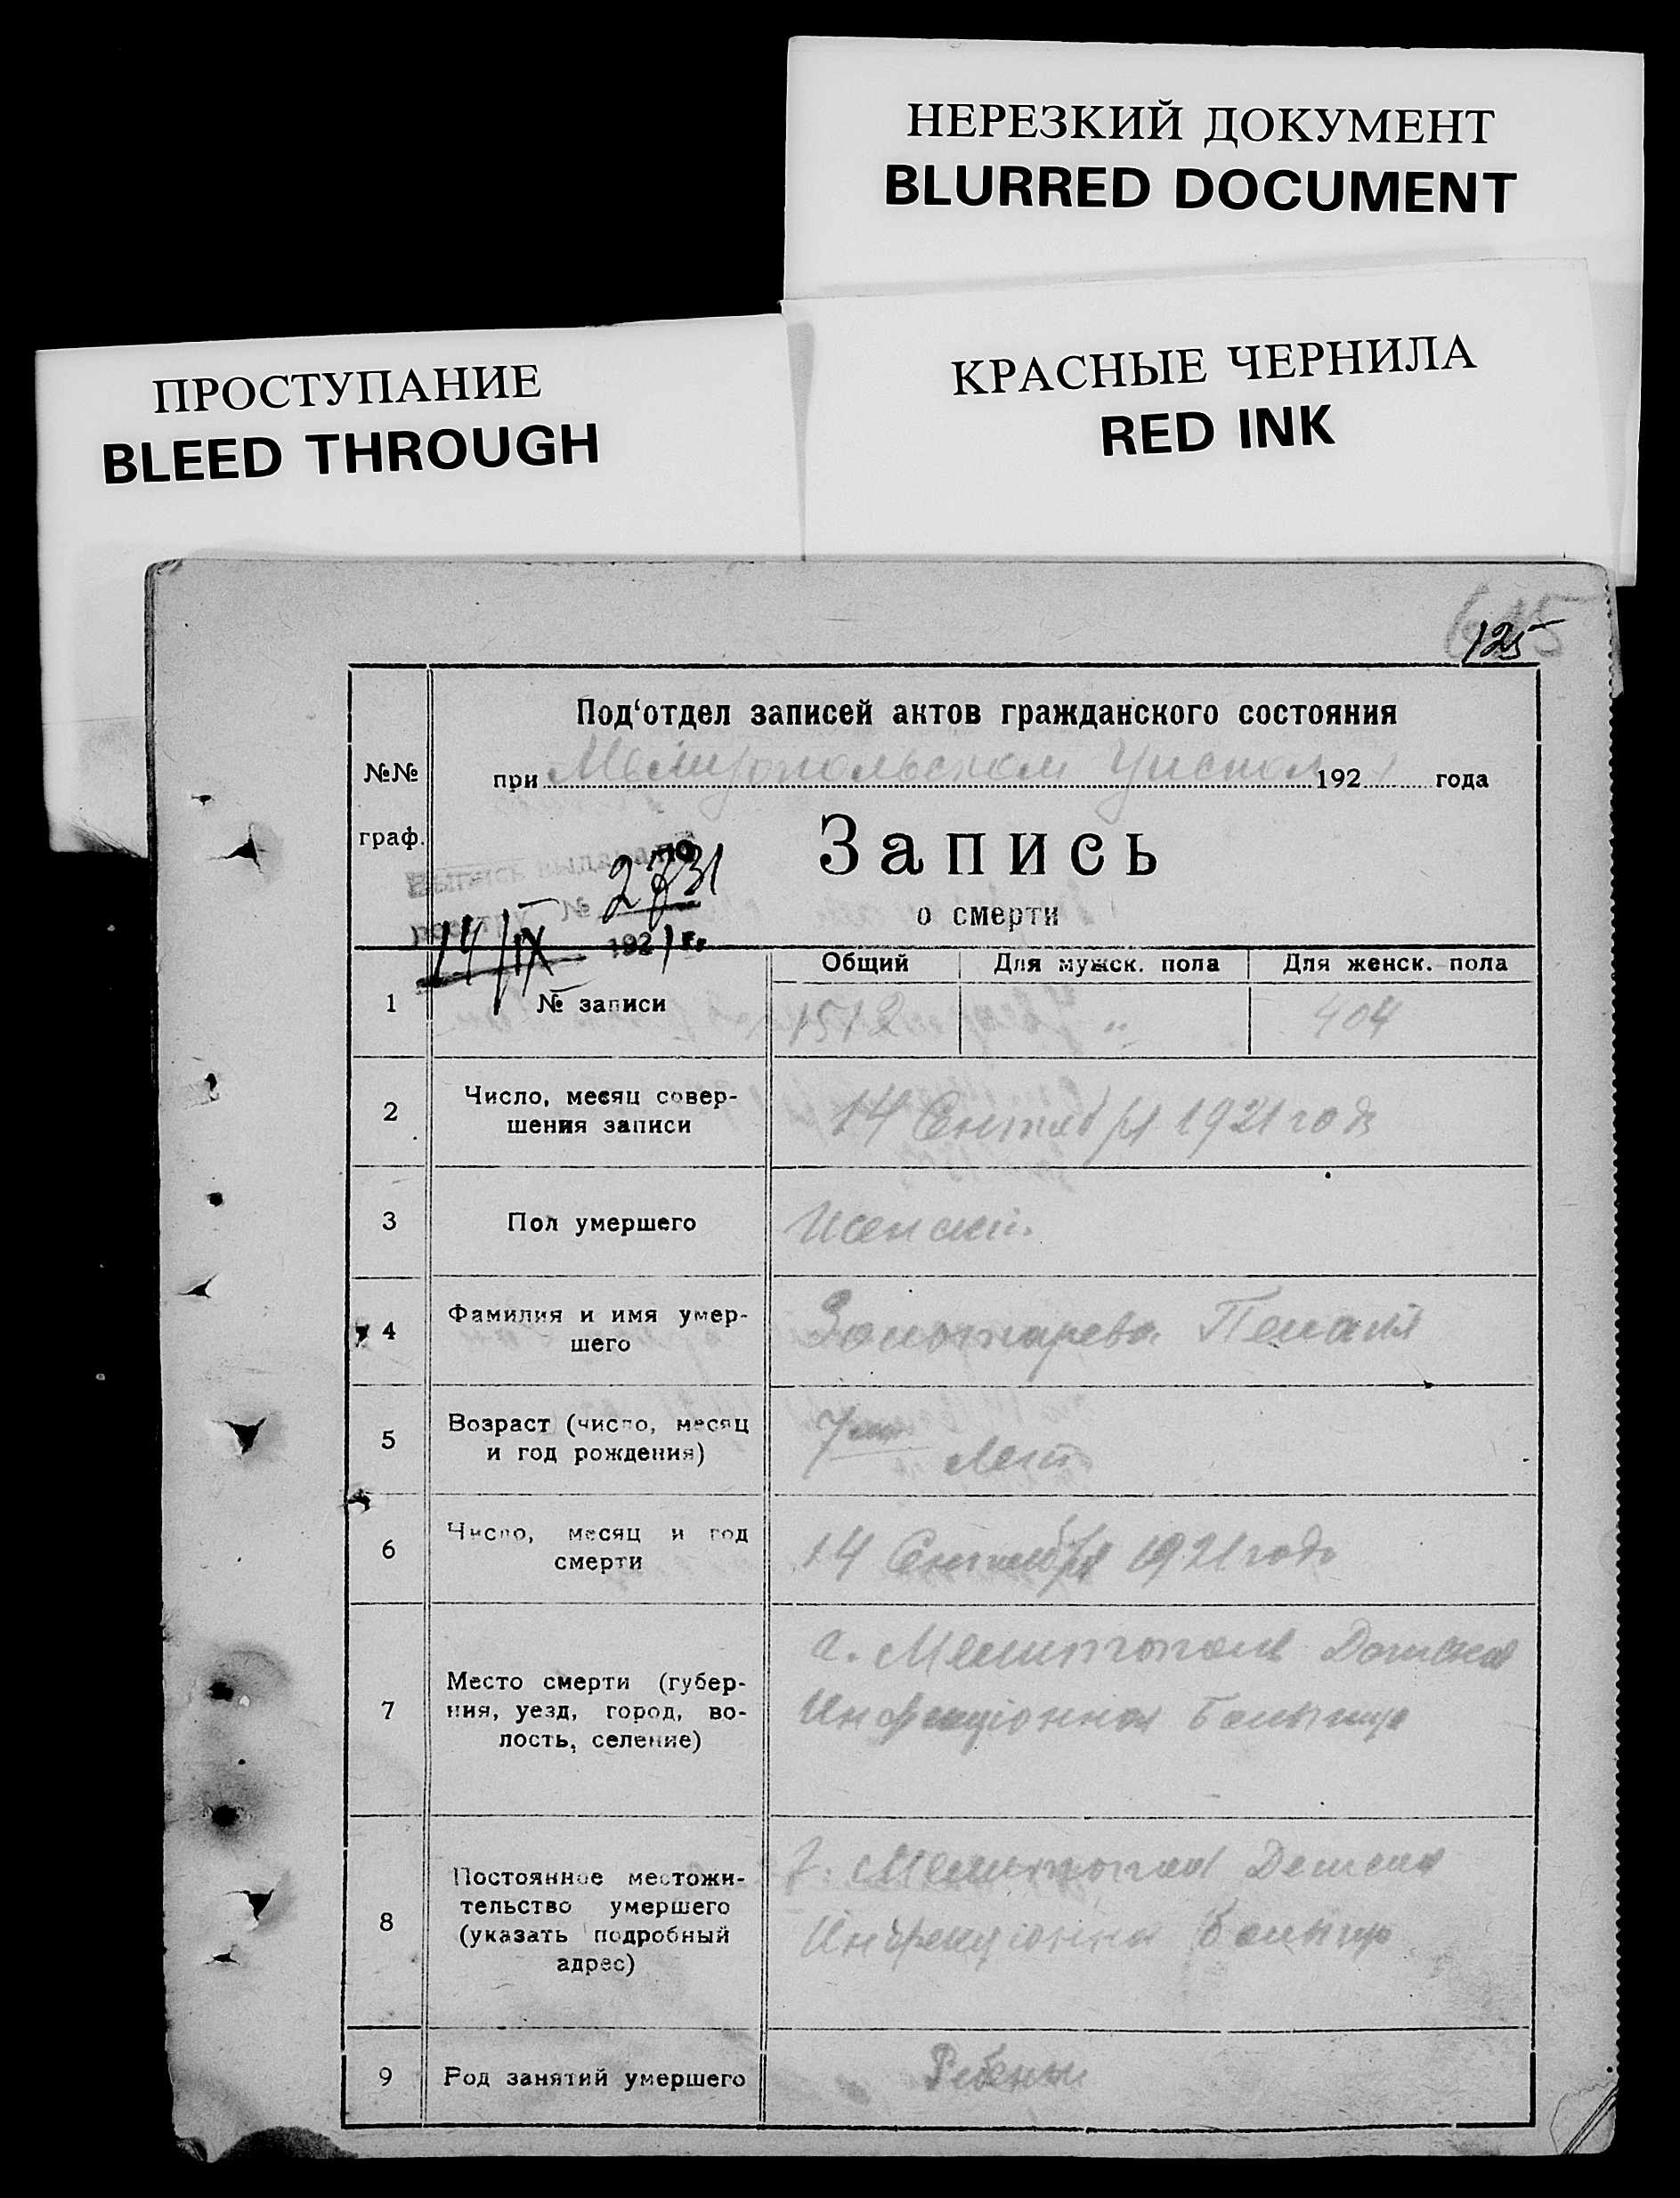 НЕРЕЗКИЙ ДОКУМЕНТ
BLURRED DOCUMENT
КРАСНЫЕ ЧЕРНИЛА
RED INK
ПРОСТУПАНИЕ
BLEED THROUGH
125
№№ граф.
Под‘отдел записей актов гражданского состояния
при 1921 года
Запись
о смерти
выдана по
№ 2731
14/IX 1921 г.
Общий Для мужск. пола Для женск. пола
1 № записи 1512 " 404
2 Число, месяц совер-
шения записи
14 Сентября 1921 года
3 Пол умершего Женский.
4 Фамилия и имя умер-
шего
5 Возраст (число, месяц
и год рождения)
7 лет
6 Число, месяц и год
смерти
14 Сентября 1921 года
7 Место смерти (губер-
ния, уезд, город, во-
лость, селение)
г. Мелитополь
Инфекціонная Больница
8 Постоянное местожи-
тельство умершего
(указать подробный
адрес)
г. Мелитополь Детская
Инфекціонная Больница
9 Род занятий умершего Ребенок